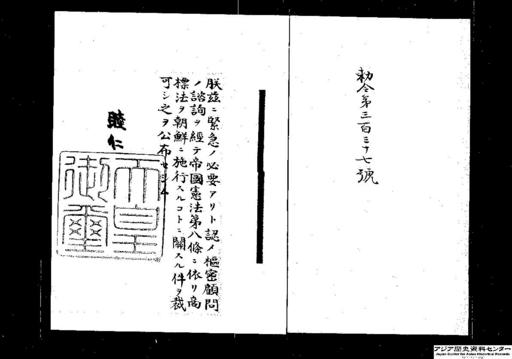 勅令第三百三十七號
朕茲ニ緊急ノ必要アリト認メ樞密顧問
ノ諮詢ヲ經テ帝國憲法第八條ニ依リ商
標法ヲ朝鮮ニ施行スルコトニ關スル件ヲ裁
可シ之ヲ公布セシム
睦仁
天皇
御璽
アジア歴史資料センター
Japan Center for Asian Historical Records